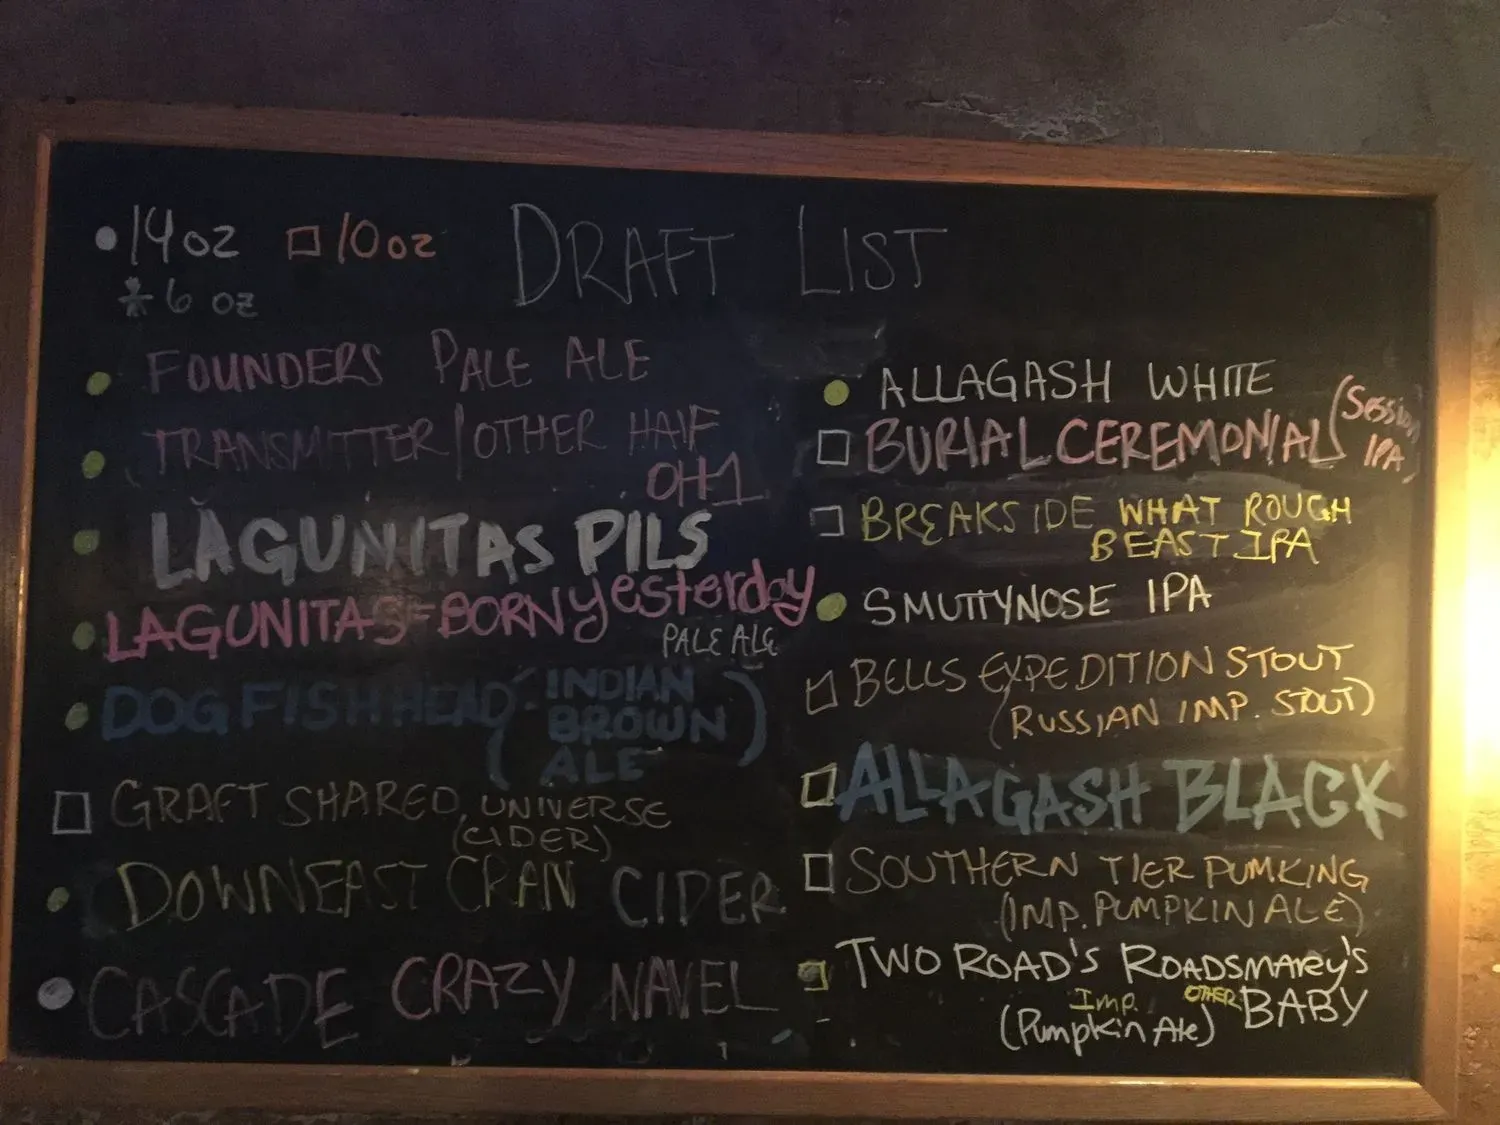 14oz 10oz DRAFT LIST
* 6 oz
FOUNDERS PALE ALE
TRANSMITTER/OTHER HALF
OH1
LAGUNITAS PILS
LAGUNITAS=BORN yesterday
PALE ALE
DOGFISHHEAD (INDIAN
BROWN
ALE)
GRAFT SHARED UNIVERSE
(CIDER)
DOWNEAST CRAN CIDER
CASCADE CRAZY NAVEL
ALLAGASH WHITE
BURIAL CEREMONIAL (Session
IPA)
BREAKSIDE WHAT ROUGH
BEAST IPA
SMUTTYNOSE IPA
BELLS EXPEDITION STOUT
(RUSSIAN IMP. STOUT)
ALLAGASH BLACK
SOUTHERN TIER PUMKING
(IMP. PUMPKIN ALE)
TWO ROAD'S ROADSMARY'S
Imp. OTHER BABY
(Pumpkin Ale)